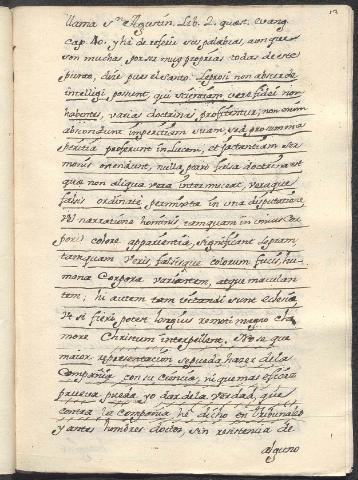 12
llama S.n Agustin. Lib. 2. quæst. evang.
cap. 40. y hè de referir sus palabras, aunque
son muchas, por su muy proprias todas de este
punto, dize pues el Santo. Leprosi non absurde
intelligi possunt, qui scientiam veræ fidei non
habentes, varias doctrinas profitentur, non enim
abscondunt imperitiam suam, sed pro summa
peritia proferunt in lucem, et jactantiam ser
monis ostendunt, nulla porrò falsa doctrina est
quæ non aliqua vera intermisceat, vera ergo
falsis ordinate permixta in una disputatione
vel narratione hominis, tamquam in unius cor
poris colore apparentia, significant lepram
tamquam veris, falsisque colorum fucis, hu
mana corpora variantem, atque maculan
tem; hi autem tam vitandi sunt eclesiæ,
ut si fieri potest longius remoti magno cla
more Christum interpellent. No se que
maior representacion se pueda hazer de la
Compañia con su ciencia, ni que mas eficaz
prueva pueda yo dar de la verdad, que
contra la Compañia hè dicho en Tribunales
y antes hombres doctos, sin resistencia de
alguno